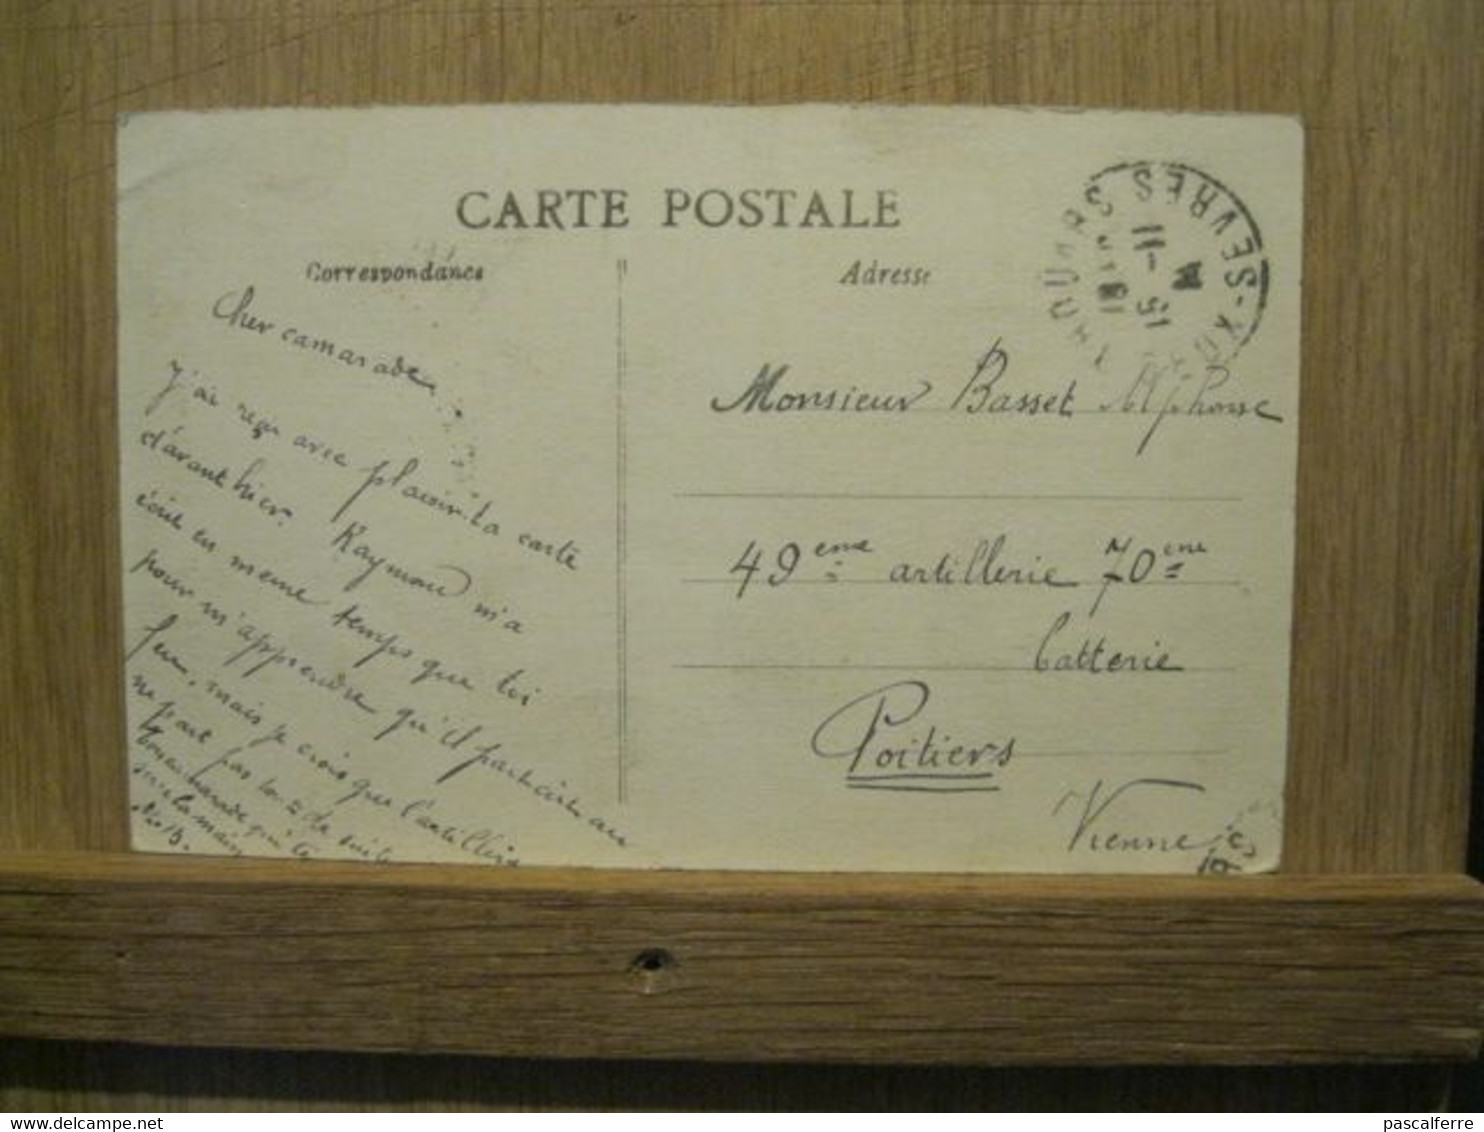 CARTE POSTALE
Correspondance
Adresse
THOUARS
X-SEVRES
11
15
Cher camarade
J'ai reçu avec plaisir ta carte
d'avant hier. Raymond m'a
écrit en même temps que toi
pour m'apprendre qu'il partait au
feu, mais je crois que l'artillerie
ne part pas tout de suite
Ton camarade qui te
serre la main
Monsieur Basset Alphonse
49eme artillerie 70eme
batterie
Poitiers
Vienne
delcampe.net
pascalferre